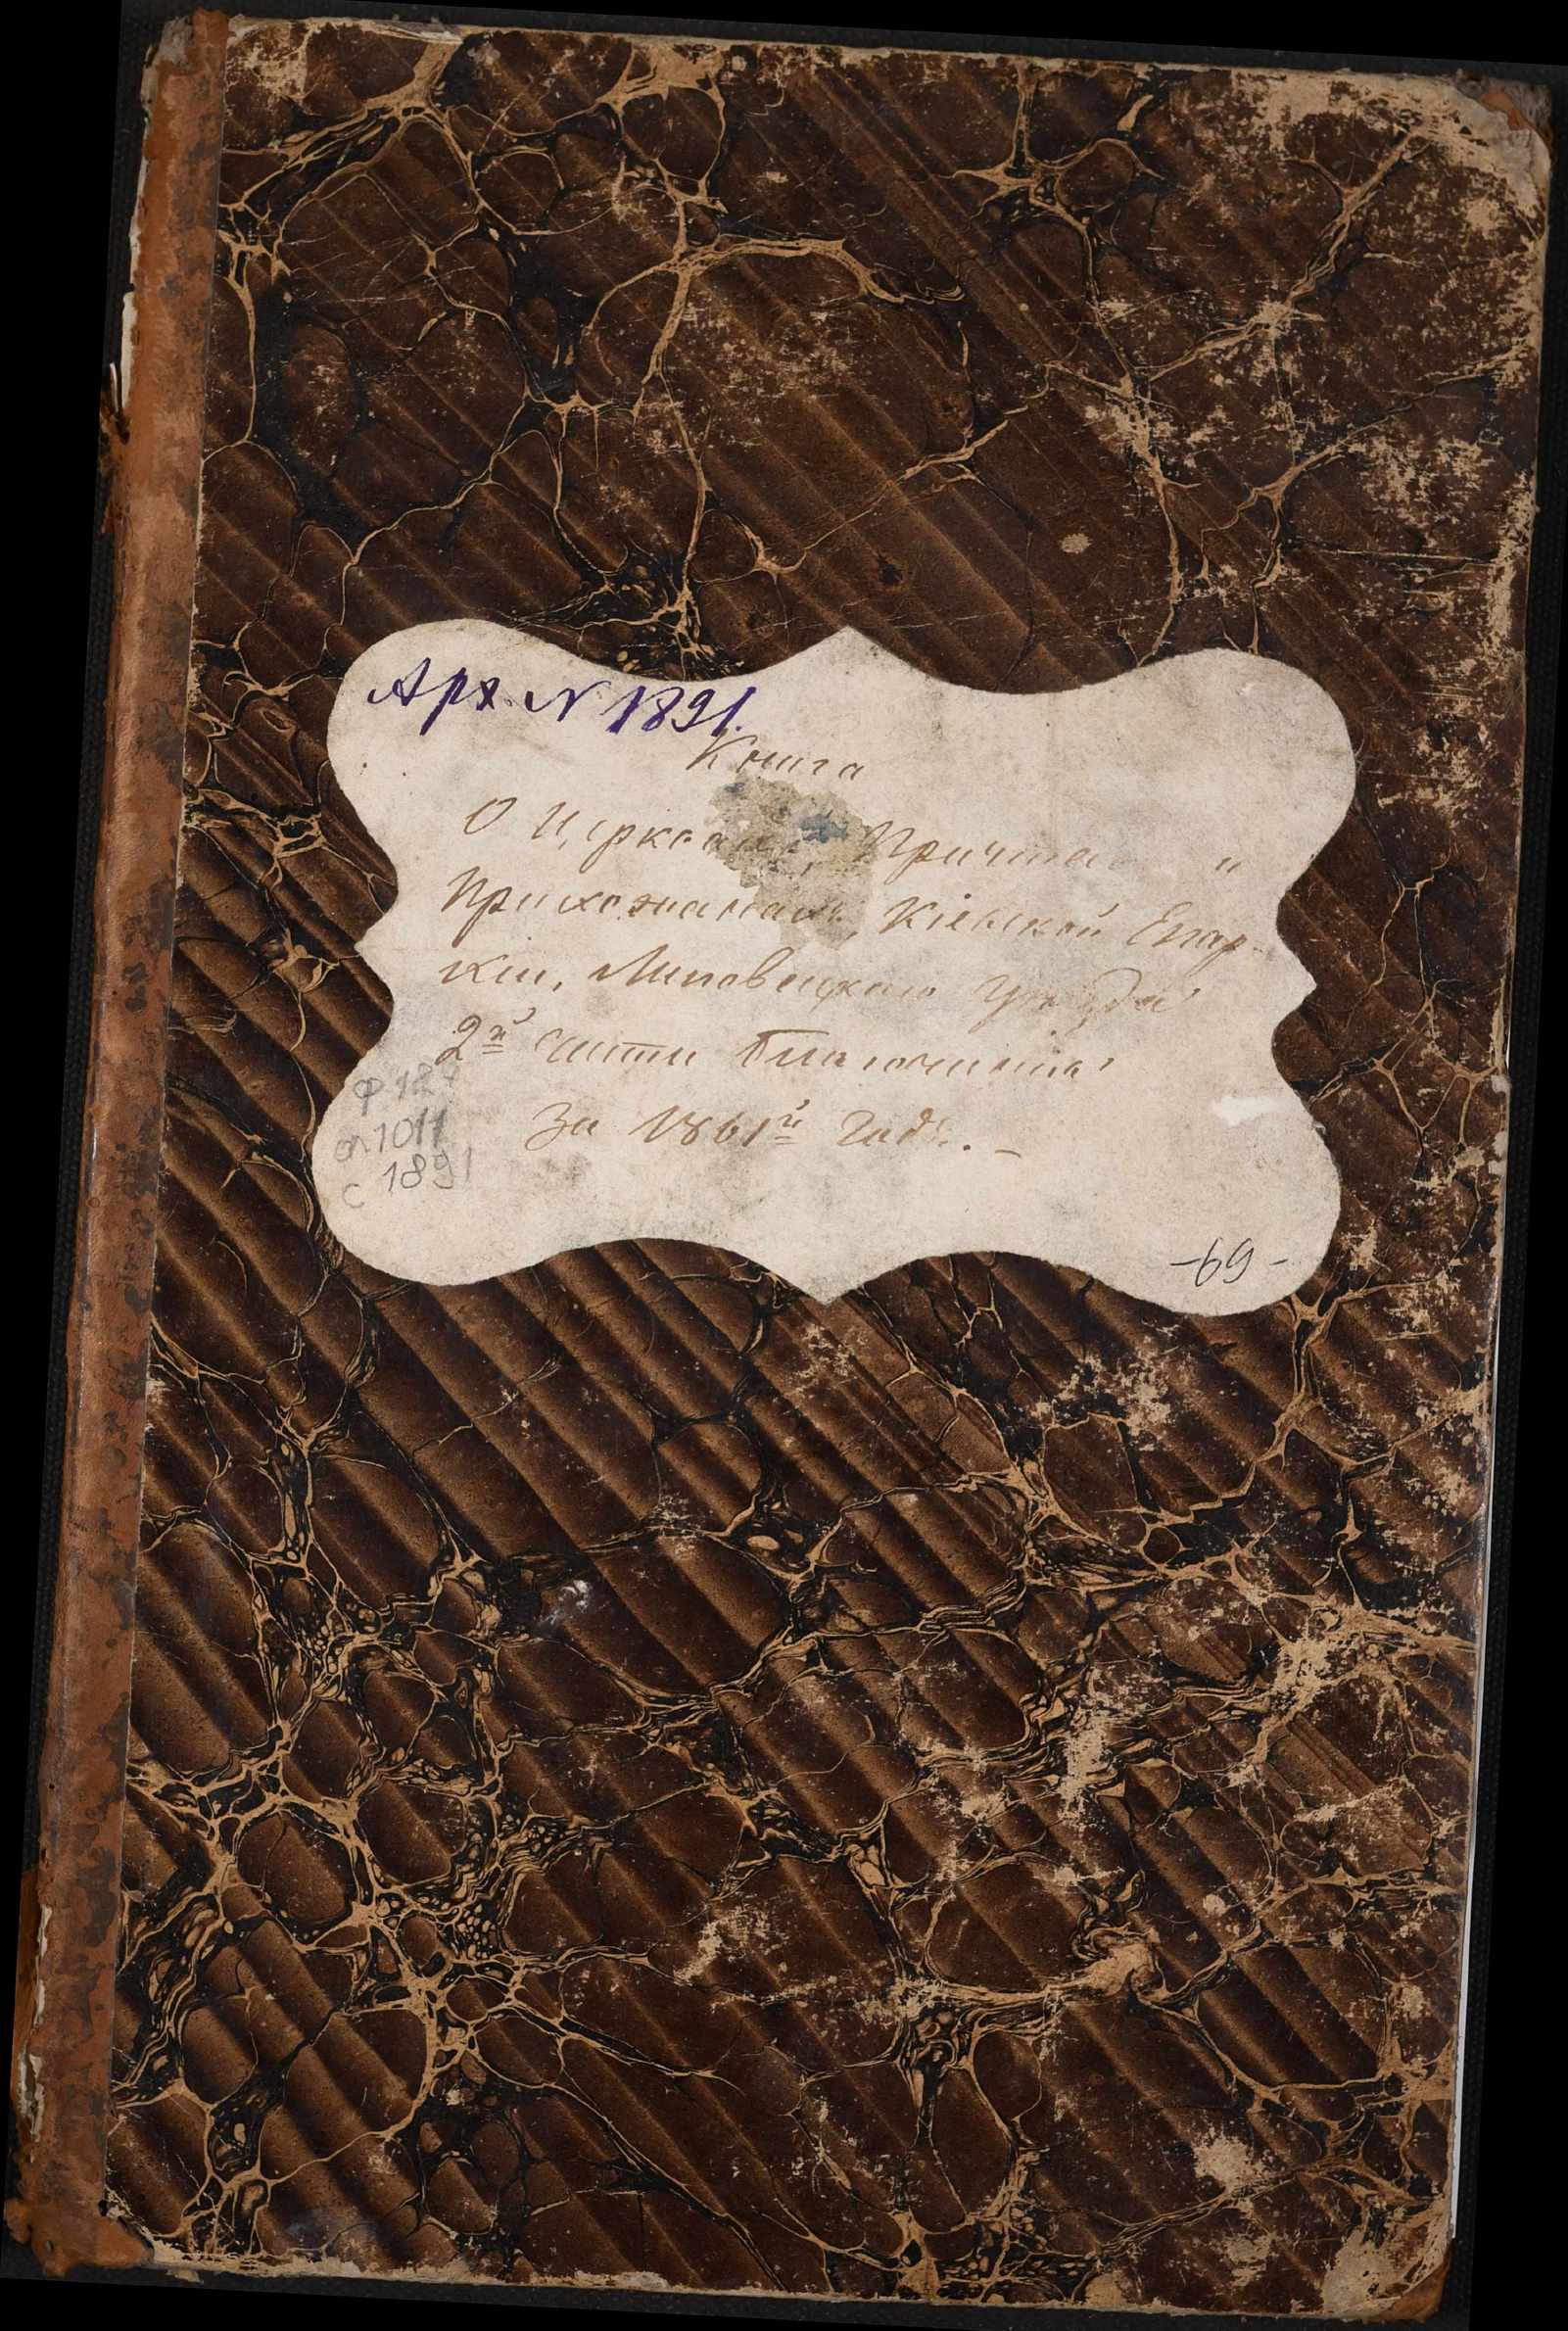 Арх. N 1891.
Книга
О Церквахъ, Причтахъ и
Прихожанахъ, Кіевской Епар-
хіи, Липовецкаго Уѣзда
2й части Благочинія
За 1861й Годъ. –
оп 1011
с 1891
-69-